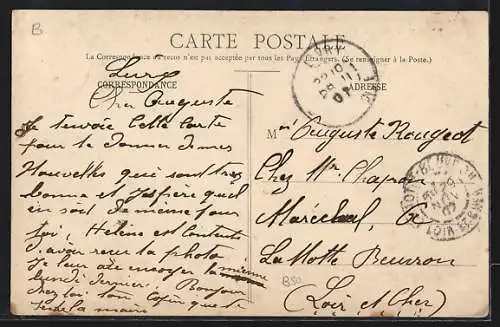 B
CARTE POSTALE
La Correspondance au recto n'est pas acceptée par tous les Pays Etrangers. (Se renseigner à la Poste.)
CORRESPONDANCE
ADRESSE
Cher Auguste
Je tenvoie Cette Carte
pour te donner de mes
Nouvelles qui sont tres
bonne et Jespère quil
en soit de meme pour
toi, Hélène est Contente
d'avoir reçu la photo
Je leur ai envoyer la mienne
Lundi dernier. Bonjour
chez toi ton Copin qui te
serre la main
Mr Auguste Rougeot
Chez Mr. Chapron
Maréchal, A
La Motte Beuvron
(Loir et Cher)
B50